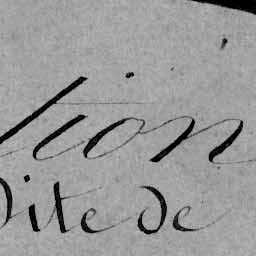 tion
Dite de